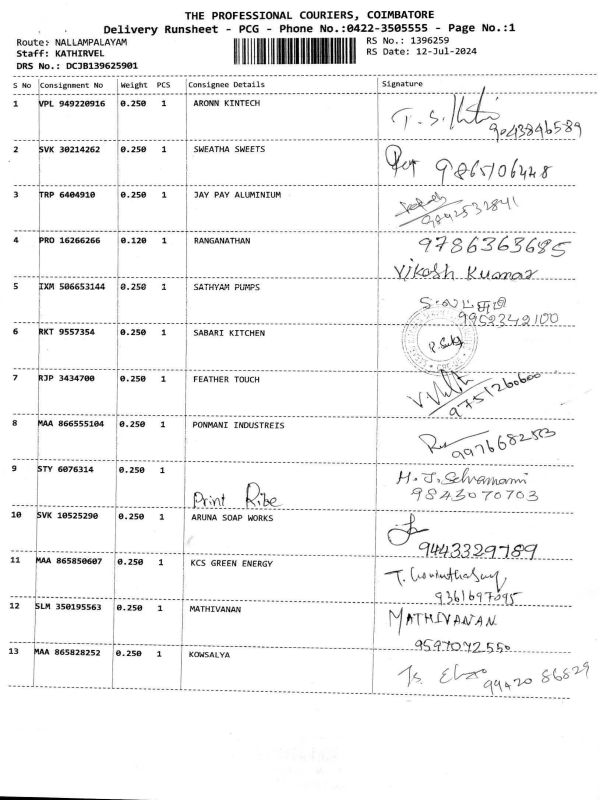 THE PROFESSIONAL COURIERS, COIMBATORE
Delivery Runsheet - PCG - Phone No.:0422-3505555 - Page No.:1
Route: NALLAMPALAYAM
RS No.: 1396259
Staff: KATHIRVEL
RS Date: 12-Jul-2024
DRS No.: DCJB139625901
S No Consignment No Weight PCS Consignee Details Signature
1 VPL 949220916 0.250 1 ARONN KINTECH
9043846589
2 SVK 30214262 0.250 1 SWEATHA SWEETS
9865106448
3 TRP 6404910 0.250 1 JAY PAY ALUMINIUM
9842532841
4 PRO 16266266 0.120 1 RANGANATHAN 9786363685
Vikash Kumar
5 IXM 506653144 0.250 1 SATHYAM PUMPS
9952342100
6 RKT 9557354 0.250 1 SABARI KITCHEN
7 RJP 3434700 0.250 1 FEATHER TOUCH
9751260600
8 MAA 866555104 0.250 1 PONMANI INDUSTREIS
9 STY 6076314 0.250 1
H. J. Selvamani
Print Ribe 9843070703
10 SVK 10525290 0.250 1 ARUNA SOAP WORKS
9443329789
11 MAA 865850607 0.250 1 KCS GREEN ENERGY
9361697095
12 SLM 350195563 0.250 1 MATHIVANAN MATHIVANAN
9597072550
13 MAA 865828252 0.250 1 KOWSALYA
99420 86829